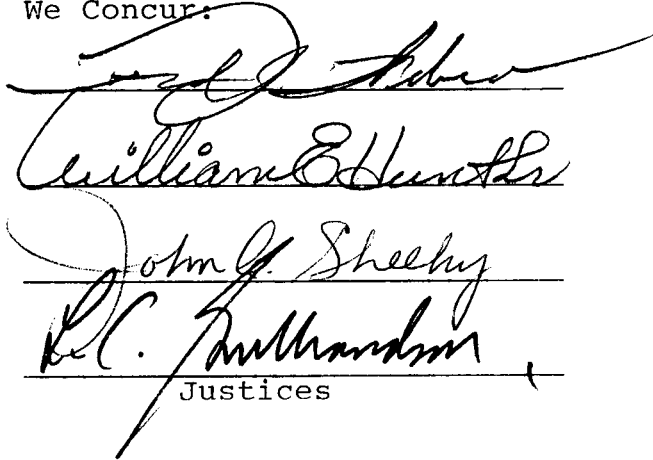 We Concur:
William E Hunt Sr
John C. Sheehy
L. C. Gulbrandson
Justices